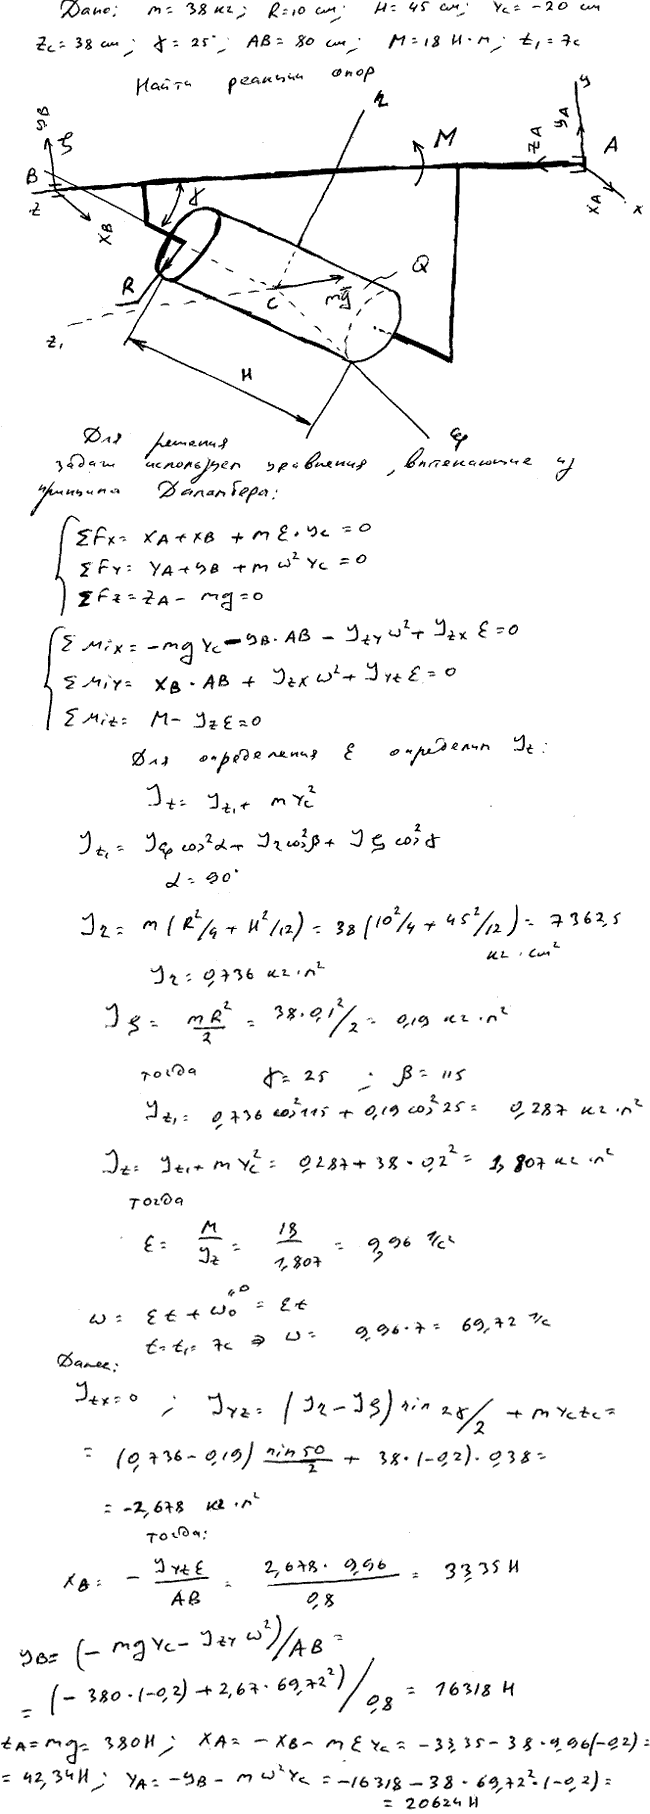 Дано: m = 38 кг; R = 10 cm; H = 45 cm; Yc = -20 cm
Zc = 38 cm; γ = 25°; AB = 80 cm; M = 18 Н·м; t₁ = 7c
Найти реакции опор
yB
ζ
B
z
xB
γ
η
M
zA
yA
y
A
xA
x
R
C
mg
Q
z₁
H
ξ
Для решения
задачи используем уравнения, вытекающие из
принципа Даламбера:
ΣFx = XA + XB + mε·yc = 0
ΣFy = YA + yB + mω²Yc = 0
ΣFz = ZA - mg = 0
ΣMix = -mgYc - yB·AB - Jzyω² + Jzxε = 0
ΣMiy = XB·AB + Jzxω² + Jyzε = 0
ΣMiz = M - Jzε = 0
Для определения ε определим Jz:
Jz = Jz₁ + mYc²
Jz₁ = Jξ cos²α + Jη cos²β + Jζ cos²γ
α = 90°
Jη = m(R²/4 + H²/12) = 38(10²/4 + 45²/12) = 7362,5
кг·cm²
Jη = 0,736 кг·м²
Jζ = mR²/2 = 38·0,1²/2 = 0,19 кг·м²
тогда γ = 25 ; β = 115
Jz₁ = 0,736 cos²115 + 0,19 cos²25 = 0,287 кг·м²
Jz = Jz₁ + mYc² = 0,287 + 38·0,2² = 1,807 кг·м²
тогда
ε = M/Jz = 18/1,807 = 9,96 1/c²
ω = εt + ω₀ = εt
t = t₁ = 7c ⇒ ω = 9,96·7 = 69,72 1/c
Далее:
Jzx = 0 ; Jyz = (Jη - Jζ) sin 2γ/2 + mYcZc =
= (0,736 - 0,19) sin50/2 + 38·(-0,2)·0,38 =
= -2,678 кг·м²
тогда:
XB = - Jyzε/AB = 2,678·9,96/0,8 = 33,35 Н
yB = (-mgYc - Jzyω²)/AB =
= (-380·(-0,2) + 2,67·69,72²)/0,8 = 16318 Н
ZA = mg = 380Н; XA = -XB - mεYc = -33,35 - 38·9,96(-0,2) =
= 42,34Н; YA = -yB - mω²Yc = -16318 - 38·69,72²·(-0,2) =
= 20624Н